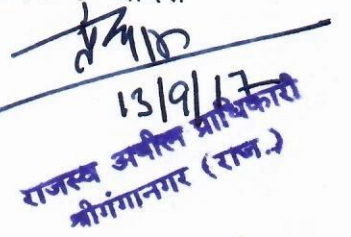 13/9/17
राजस्व अपील प्राधिकारी
श्रीगंगानगर (राज.)